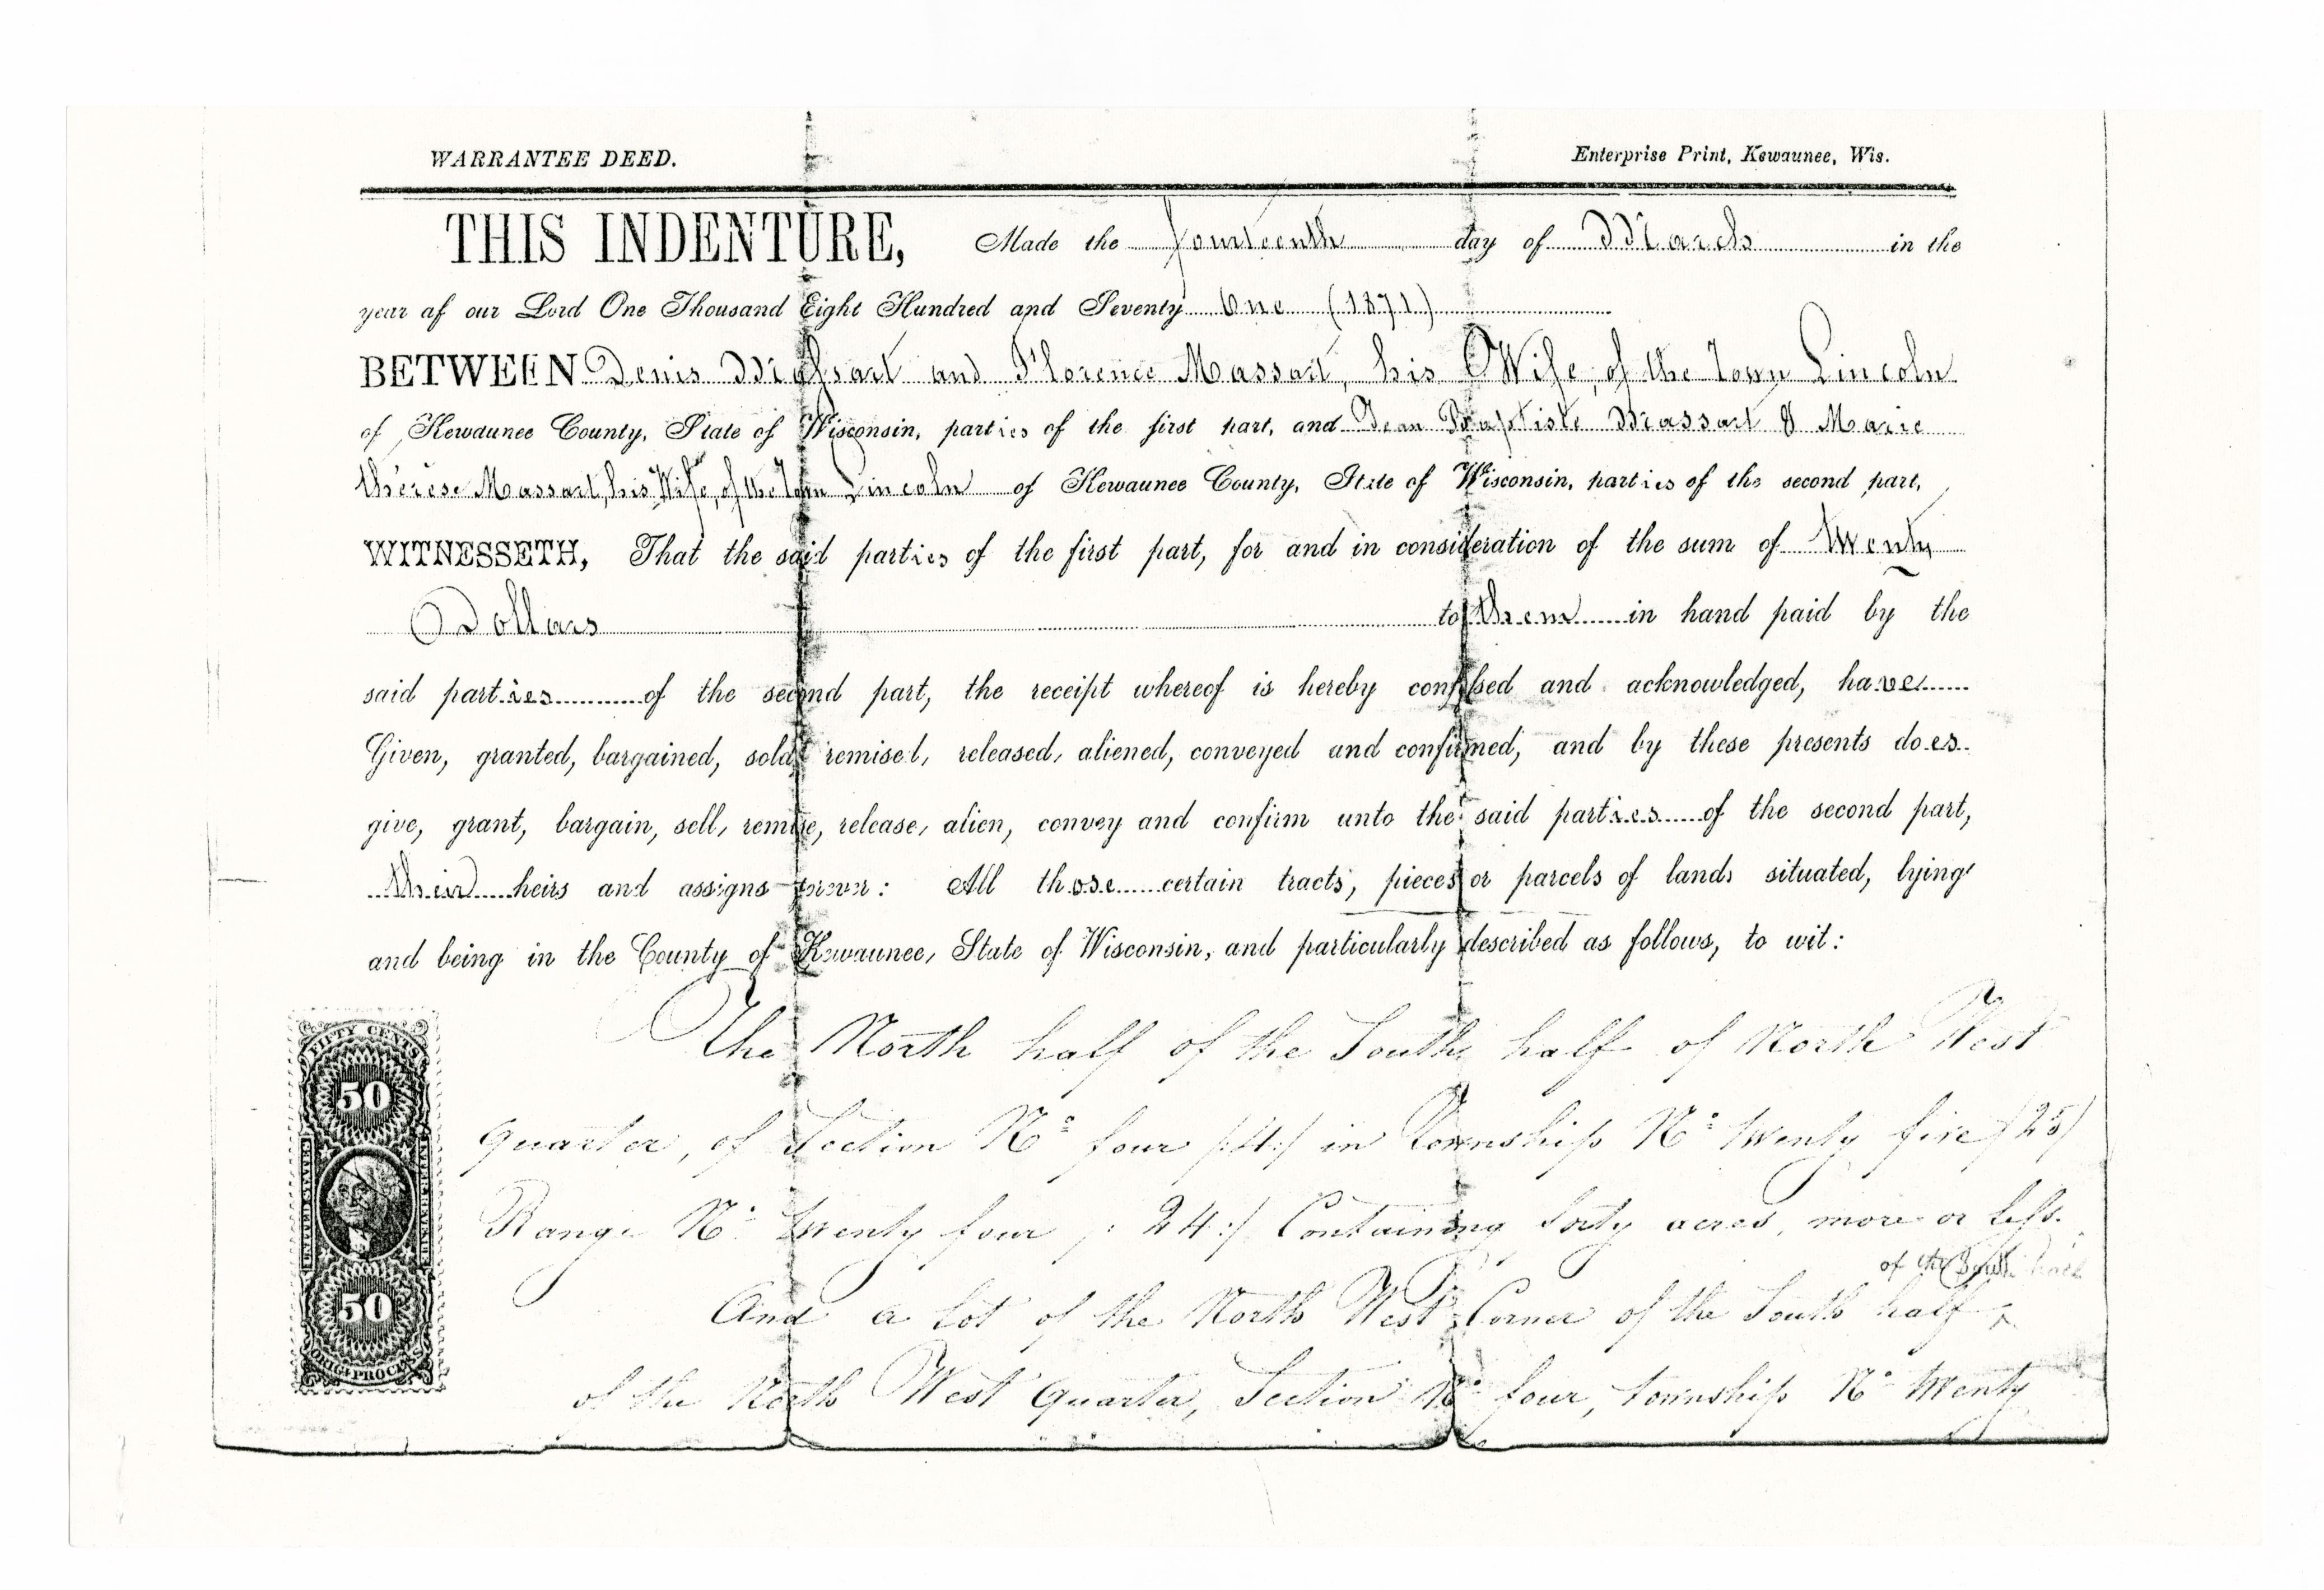 WARRANTEE DEED.
Enterprise Print, Kewaunee, Wis.
THIS INDENTURE, Made the fourteenth day of March in the
year af our Lord One Thousand Eight Hundred and Seventy One (1871)
BETWEEN Denis Massart and Florence Massart, his Wife, of the Town Lincoln
of Kewaunee County, State of Wisconsin, parties of the first part, and Jean Baptiste Massart & Marie
thérèse Massart, his Wife, of the Town Lincoln of Kewaunee County, State of Wisconsin, parties of the second part,
WITNESSETH, That the said parties of the first part, for and in consideration of the sum of twenty
Dollars to them in hand paid by the
said parties of the second part, the receipt whereof is hereby confessed and acknowledged, have
Given, granted, bargained, sold, remised, released, aliened, conveyed and confirmed, and by these presents does
give, grant, bargain, sell, remise, release, alien, convey and confirm unto the said parties of the second part,
their heirs and assigns forever: All those certain tracts, pieces or parcels of lands situated, lying
and being in the County of Kewaunee, State of Wisconsin, and particularly described as follows, to wit:
The North half of the South half of North West
quarter, of Section No four /:4:/ in Township No: twenty five /25/
Range No. twenty four /: 24:/ Containing forty acres, more or less.
of the South half
And a Lot of the North West Corner of the South half
of the North West Quarter, Section No four, township No twenty
FIFTY CENTS
50
UNITED STATES
INTER. REVENUE
50
ORIG. PROCESS